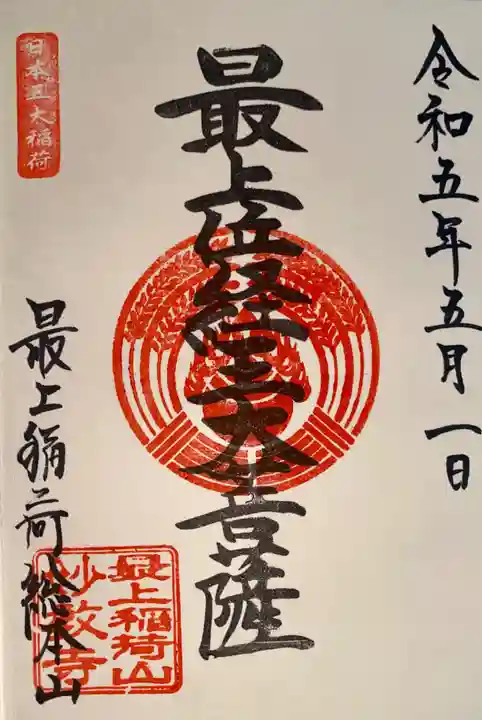 令和五年五月一日
最上位経王大菩薩
日本五大稲荷
最上稲荷総本山
最上稲荷山
妙教寺